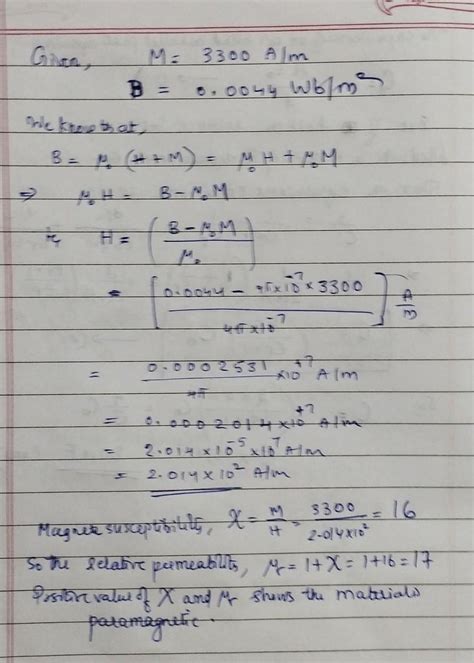 Given, M = 3300 A/m
B = 0.0044 Wb/m²
We know that,
B = μ₀ (H + M) = μ₀H + μ₀M
⇒ μ₀H = B - μ₀M
H = (B - μ₀M / μ₀)
= [0.0044 - 4π×10⁻⁷ × 3300 / 4π×10⁻⁷] A/m
= 0.0002531 / 4π ×10⁺⁷ A/m
= 0.0002014×10⁺⁷ A/m
= 2.014 × 10⁻⁵ × 10⁷ A/m
= 2.014 × 10² A/m
Magnetic susceptibility, X = M/H = 3300 / 2.014×10² = 16
So the relative permeability, μr = 1 + X = 1+16 = 17
Positive value of X and μr shows the materials
paramagnetic.